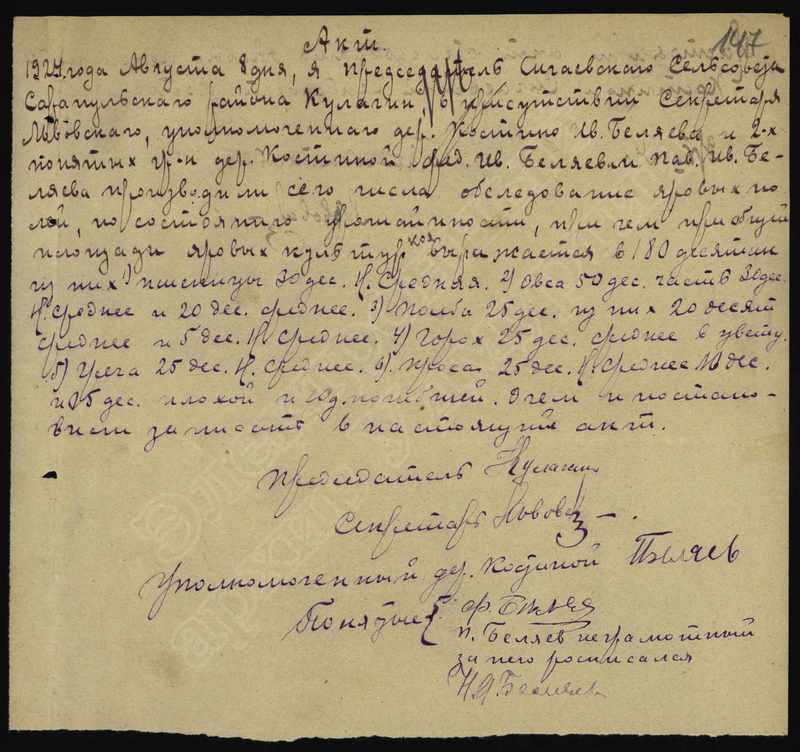 147
Акт.
1924 года Августа 8 дня, я председатель Сигаевского Сельсовета
Сарапульского района Кулагин, в присутствии Секретаря
Львовского, уполномоченного дер. Костино Ив. Беляева и 2-х
понятых гр-н дер. Костиной Фед. Ив. Беляева и Пав. Ив. Бе-
ляева производили сего числа обследование яровых по-
лей, по состоянию урожайности, при чем при общей
площади яровых культур коя выражается в 180 десятин
из них 1) пшеницы 30 дес. Н. Средняя. 2) Овса 50 дес. часть 30 дес.
Н. Среднее и 20 дес. среднее. 3) Полба 25 дес. из них 20 десят
среднее и 5 дес. Н. Среднее. 4) Горох 25 дес. среднее в цвету.
5) Греча 25 дес. Н. Среднее. 6) Проса 25 дес. Н. Среднее 10 дес.
и 15 дес. плохой и погибшей. О чем и постано-
вили записать в настоящий акт.
Председатель Кулагин
Секретарь Львовск
Уполномоченный дер. Костиной Беляев
Понятые Ф. Беляев
П. Беляев неграмотный
за него росписался
Беляев